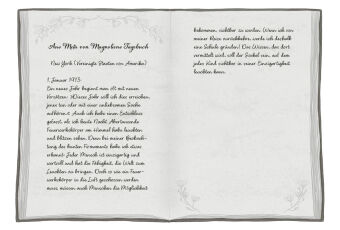 Aus Miss von Magnolians Tagebuch
New York (Vereinigte Staaten von Amerika)
1. Januar 1973:
Ein neues Jahr beginnt man oft mit neuen
Vorsätzen: Dieses Jahr will ich dies erreichen,
jenes tun oder mit einer unliebsamen Sache
aufhören! Auch ich habe einen Entschluss
gefasst, als ich heute Nacht Abertausende
Feuerwerkskörper am Himmel habe leuchten
und blitzen sehen. Denn bei meiner Beobach-
tung des bunten Firmaments habe ich etwas
erkannt: Jeder Mensch ist einzigartig und
wertvoll und hat die Fähigkeit, die Welt zum
Leuchten zu bringen. Doch so wie ein Feuer-
werkskörper in die Luft geschossen werden
muss, müssen auch Menschen die Möglichkeit
bekommen, sichtbar zu werden. Wenn ich von
meiner Reise zurückkehre, werde ich deshalb
eine Schule gründen! Das Wissen, das dort
vermittelt wird, soll der Sockel sein, auf dem
jedes Kind sichtbar in seiner Einzigartigkeit
leuchten kann.